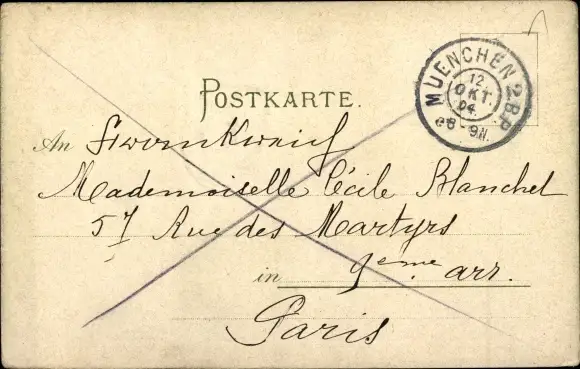 MUENCHEN 2 B.P.
12
OKT.
04.
8-9N.
POSTKARTE.
An
Mademoiselle Cécile Blanchet
57 Rue des Martyrs
in 9ème arr.
Paris